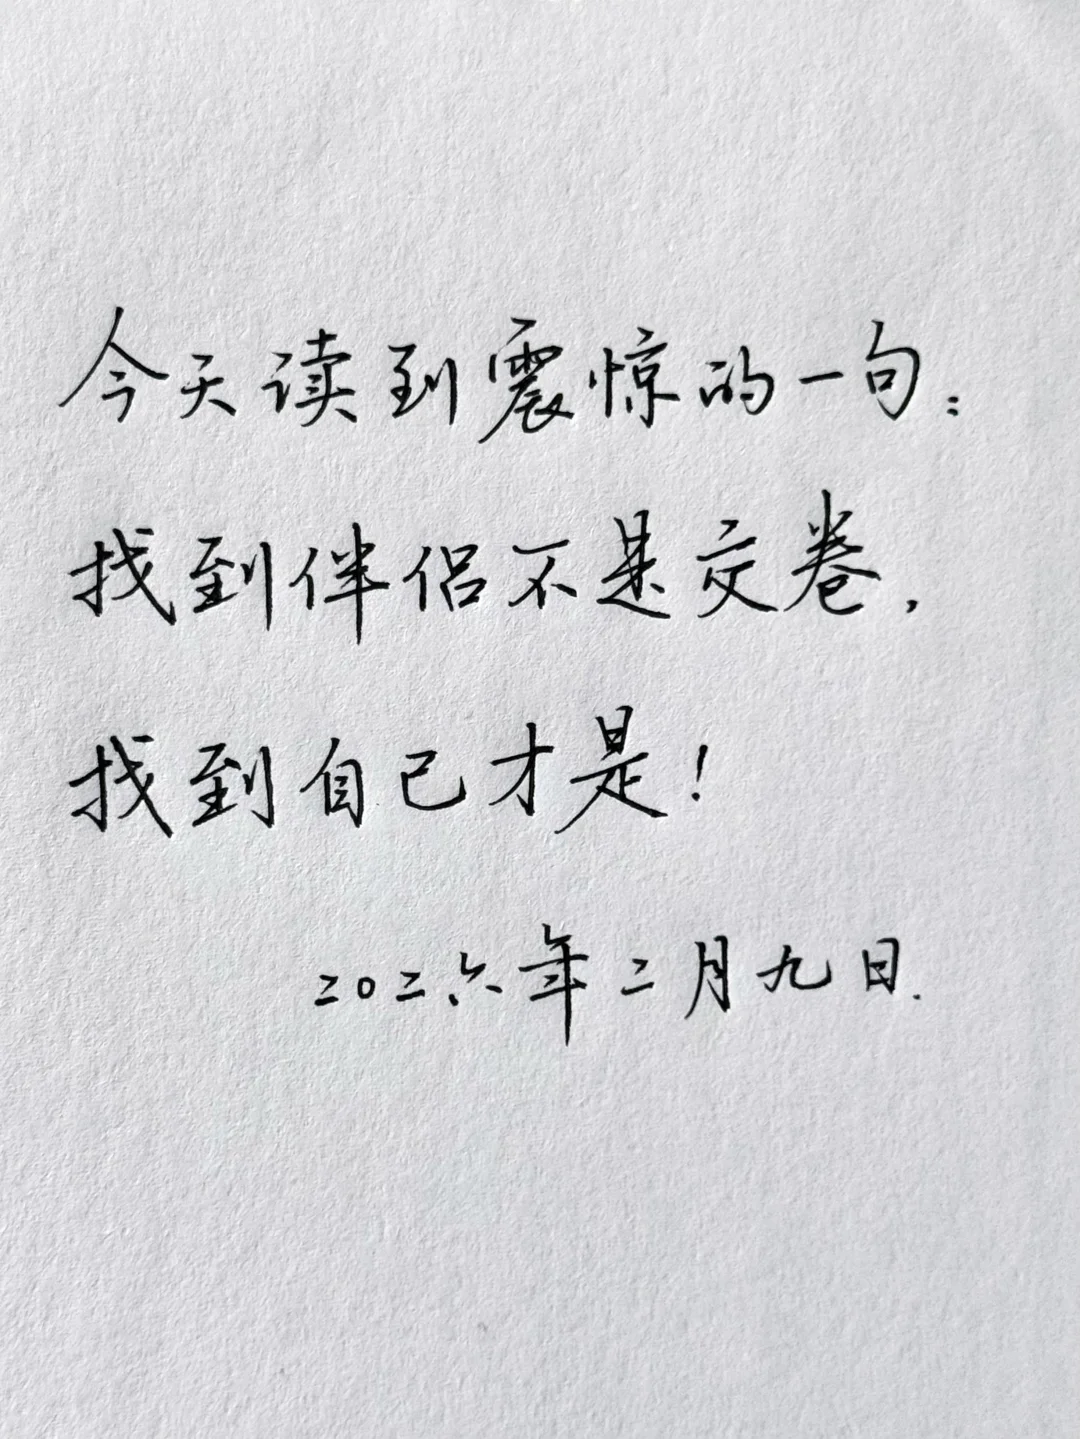 今天读到震惊的一句：
找到伴侣不是交卷，
找到自己才是！
二〇二六年二月九日.